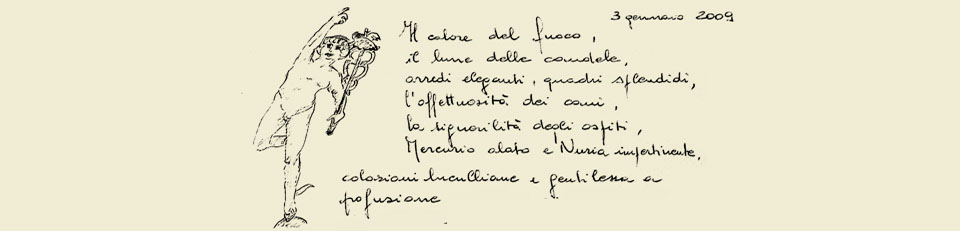 3 gennaio 2009
Il calore del fuoco,
il lume delle candele,
arredi eleganti, quadri splendidi,
l'affettuosità dei cani,
la signorilità degli ospiti,
Mercurio alato e Nuria impertinente,
colazioni luculliane e gentilezza a
profusione